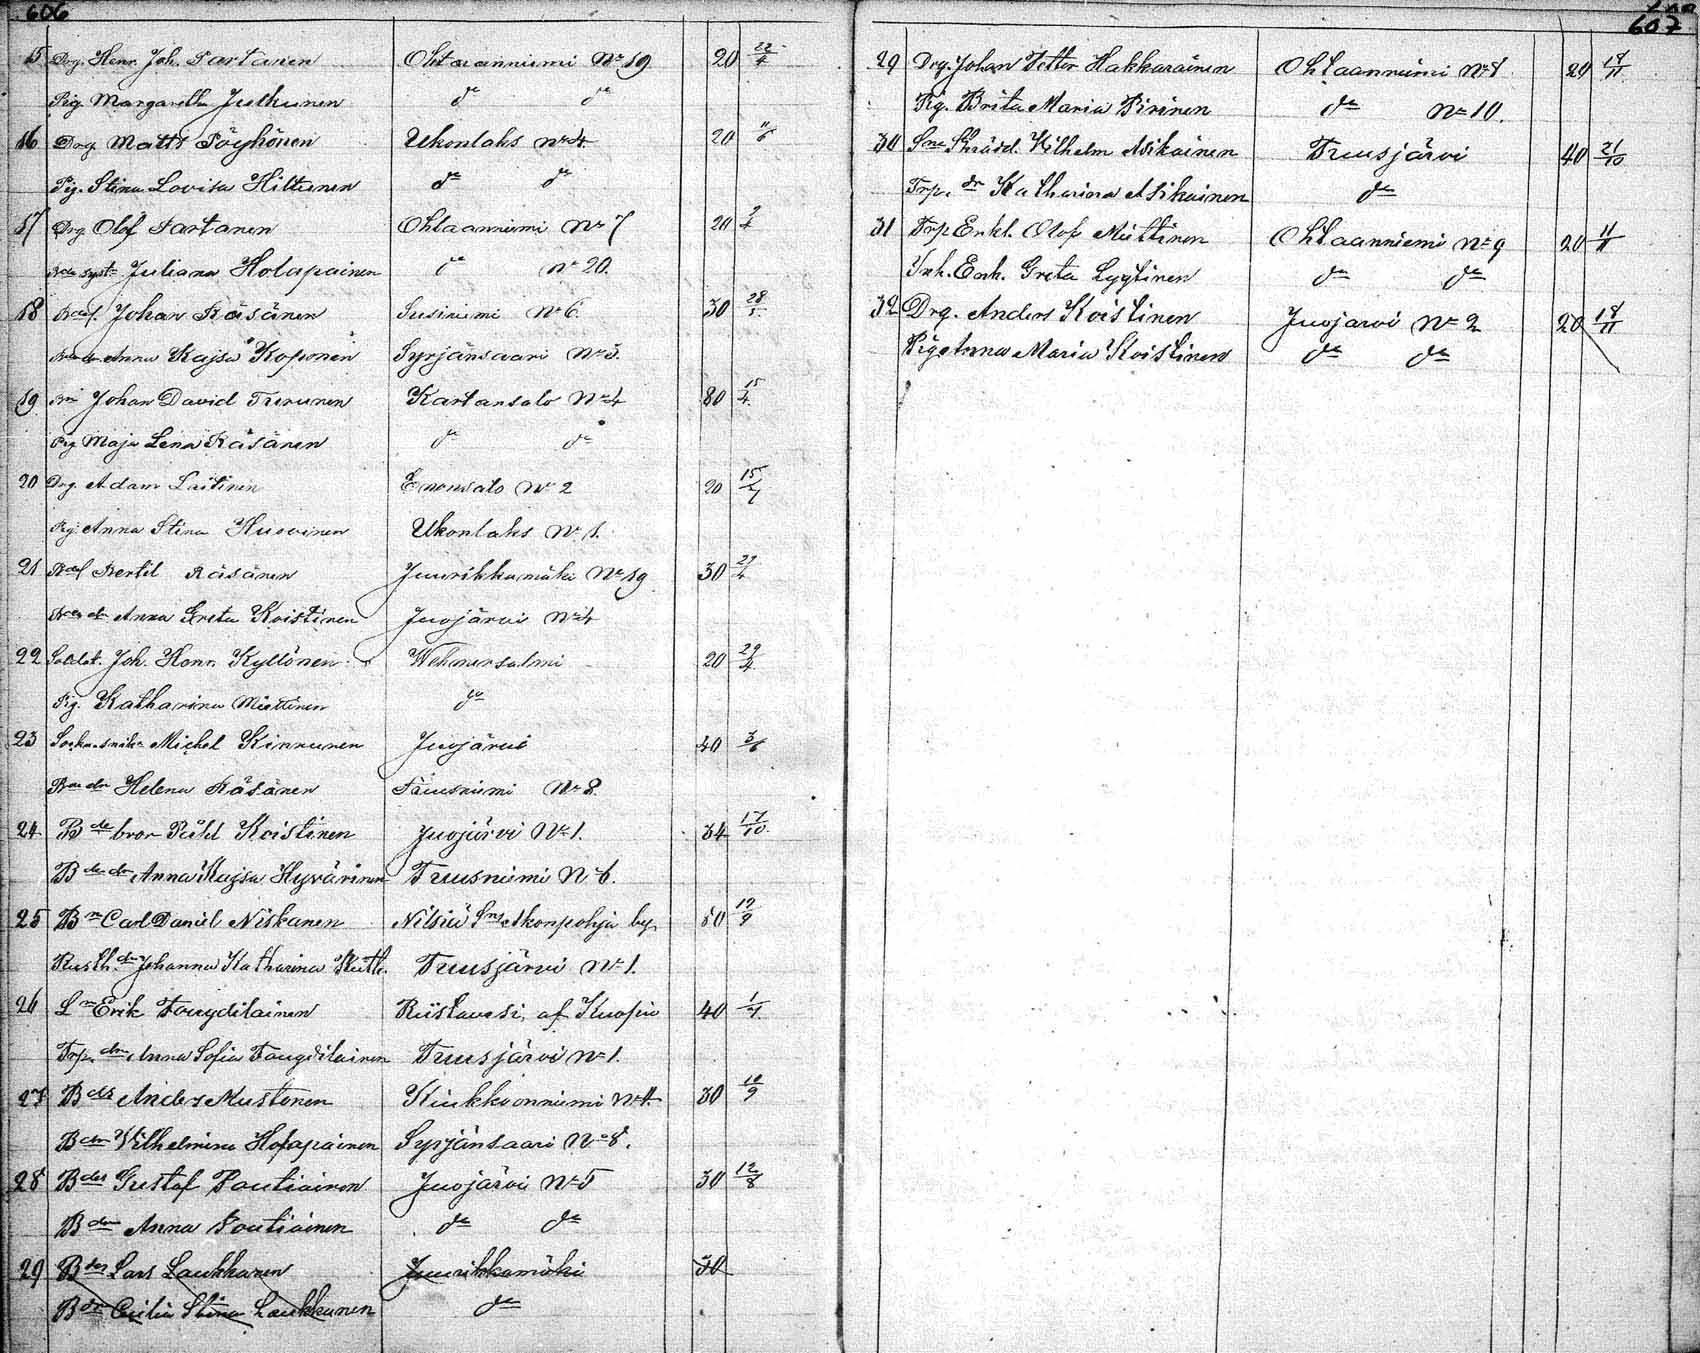 606
15 Drg. Henr. Joh. Partanen Ohtaanniemi No 19 20 22/4
Pig. Margaretha Julkunen do do
16 Drg Matts Pöyhönen Ukonlaks No 4 20 11/6
Pig. Stina Lovisa Hiltunen do do
17 Drg Olof Partanen Ohtaanniemi No 7 20 2/4
Bde syst. Juliana Holapainen do No 20.
18 Bdes. Johan Räsänen Susiniemi No 6 30 28/5
Anna Kajsa Koponen Syrjänsaari No 3.
19 Johan David Turunen Kartansalo No 4 80 15/4
Pig Maja Lena Räsänen do do
20 Drg. Adam Laitinen Enonsalo No 2 20
Pig Anna Stina Huovinen Ukonlaks No 1.
21 Bertil Räsänen Juurikkamäki No 19 30 29/4
Bde dr Anna Greta Koistinen Juojärvi No 4
22 Soldat. Joh. Henr. Kyllönen Wehmersalmi 20 29/4
Pig. Katharina Miettinen do
23 Michel Kinnunen Juojärvi 40 3/6
Bde dr Helena Räsänen No 8.
24 Bde bror Påhl Koistinen Juojärvi No 1. 34 17/10
Bde dr Anna Kajsa Hyvärinen Tuusniemi No 6.
25 Bn Carl Daniel Niskanen Nilsiä by 12/9
Rusth. dr Johanna Katharina Tuusjärvi No 1.
26 Ln Erik Riistavesi af Kuopio 40
Trp. dr Anna Sofia Tuusjärvi No 1.
27 Bds Anders Mustonen No 4. 30 10/9
Bdr Wilhelmina Holapainen Syrjänsaari No 8.
28 Bdes Gustaf Poutiainen Juojärvi No 5 30 12/8
Bdr Anna Poutiainen do do
29 Bdes Lars Laukkanen Juurikkamäki 30
Bdr Cecilia Stina Laukkanen do
607
29 Drg. Johan Petter Hakkarainen Ohtaanniemi No 8 20 18/11
Pig. Brita Maria Pirinen do No 10.
30 Sne Skrädd. Wilhelm Asikainen Tuusjärvi 40 21/10
Trp. dr Katharina Asikainen do
31 Trp. Enkl. Olof Miettinen Ohtaanniemi No 9 20 11/11
Inh. Enk. Greta Lyytinen do do
32 Drg. Anders Koistinen Juojarvi No 2 20 18/11
Pig Anna Maria Koistinen do do